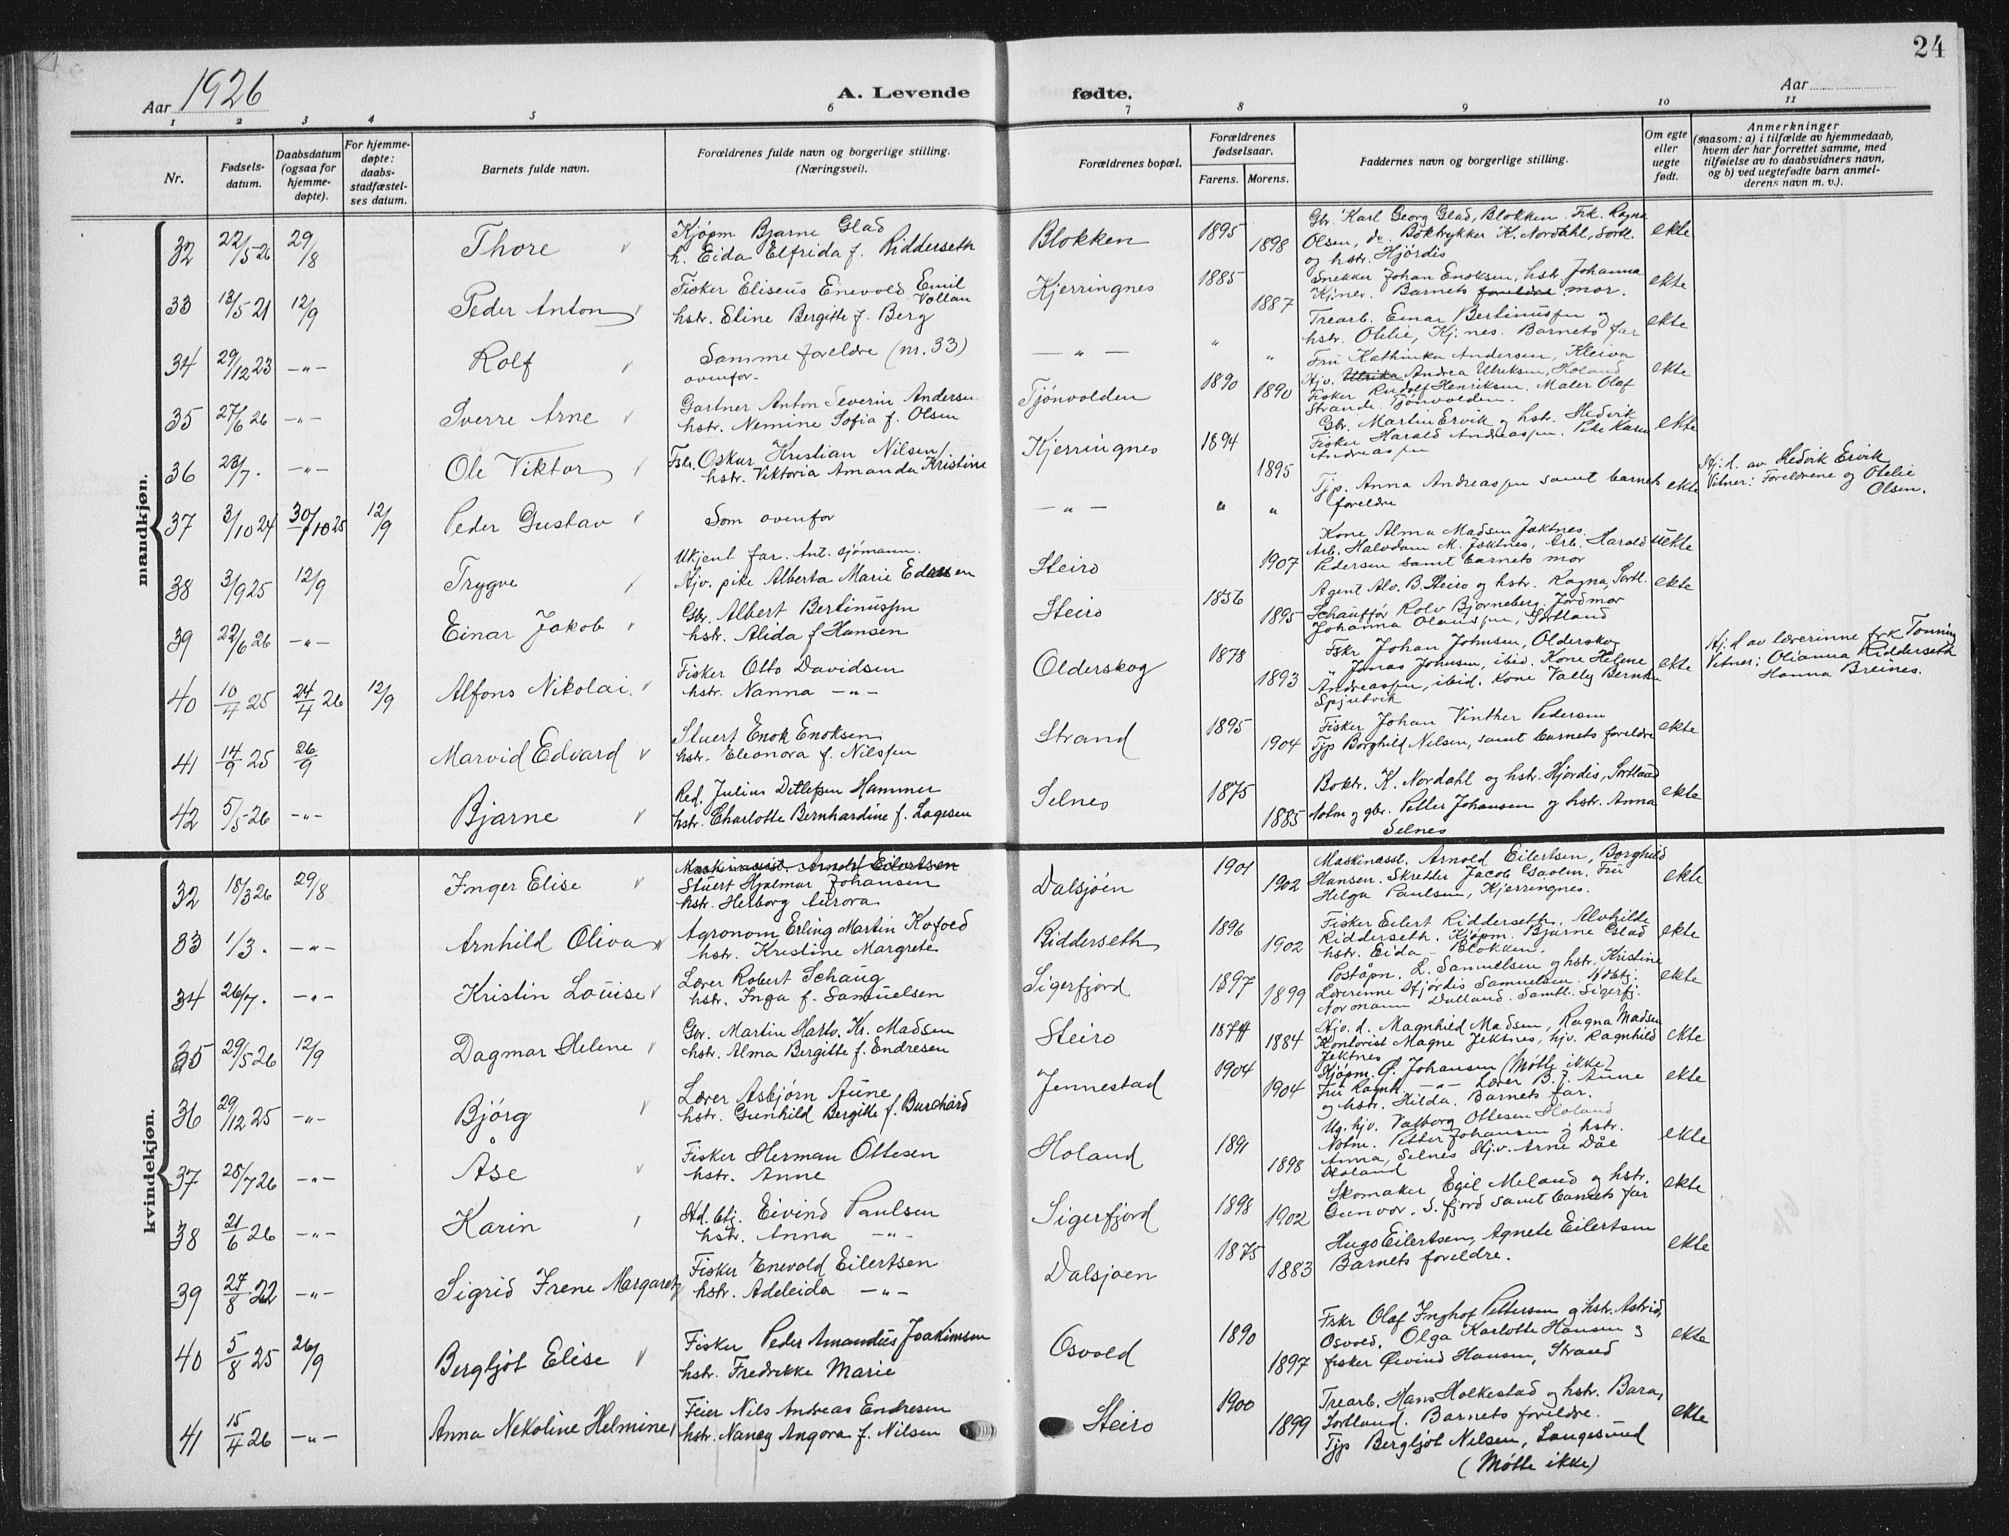 24
Aar 1926
A. Levende fødte.
Aar
1 2 3 4 5 6 7 8 9 10 11
Nr.
Fødsels-
datum.
Daabsdatum
(ogsaa for
hjemme-
døpte).
For hjemme-
døpte:
daabs-
stadfæstel-
ses datum.
Barnets fulde navn.
Forældrenes fulde navn og borgerlige stilling.
(Næringsvei).
Forældrenes bopæl.
Forældrenes
fødselsaar.
Farens. Morens.
Faddernes navn og borgerlige stilling.
Om egte
eller
uegte
født.
Anmerkninger
(saasom: a) i tilfælde av hjemmedaab,
hvem der har forrettet samme, med
tilføielse av to daabsvidners navn,
og b) ved uegtefødte barn anmel-
derens navn m. v.).
mandkjøn.
32 22/5 26 29/8 Thore
Kjøpm Bjarne Glad
h. Eida Elfrida f. Ridderseth
Blokken 1895 1898
Gbr. Karl Georg Glad, Blokken. Frk. Ragna
Olsen, do. Boktrykker K. Nordahl, Sortl.
og hstr. Hjørdis
ekte
33 13/5 21 12/9 Peder Anton
Fisker Eliseus Enevold Emil
Vollan
hstr. Eline Bergitte f. Berg
Kjerringnes 1885 1887
Snekker Johan Enoksen, hstr. Johanna
Kj.nes. Barnets foreldre mor.
ekte
34 29/12 23 —"— Rolf
Samme foreldre (nr. 33)
ovenfor.
—"— " "
Trearb. Einar Bertinussen og
hstr. Otelie, Kj.nes. Barnets far
ekte
35 27/6 26 —"— Sverre Arne
Gartner Anton Severin Andersen
hstr. Nemine Sofia f. Olsen
Tjønvolden 1890 1890
Fru Kathinka Andersen, Kleiva
Hjv. Ulrika Andrea Ulriksen, Holand
Fisker Rudolf Henriksen. Maler Olaf
Strande. Tjønvolden.
ekte
36 23/7. —"— Ole Viktor
Fskr. Oskar Kristian Nilsen
hstr. Viktoria Amanda Kristine
Kjerringnes 1894 1895
Gbr. Martin Ervik og hstr. Hedvik
Fisker Harald Andreassen. Pike Karen
Andreassen
ekte
37 3/10 24 30/10 25 12/9 Peder Gustav
Som ovenfor
—"— " "
Tjp. Anna Andreassen samt barnets
foreldre
ekte
Hj: d. av Hedvik Ervik
Vitner: Foreldrene og Otelie
Olsen.
38 3/9 25 12/9 Trygve
Ukjent far. Ant. sjømann.
Hjv. pike Alberta Marie
Steiro 1907
Kone Alma Madsen Jektnes.
Arb. Halvdan M. Jektnes, Arb. Harald
Pedersen samt barnets mor
uekte
39 22/6 26 —"— Einar Jakob
Gbr. Albert Bertinussen
hstr. Alida f. Hansen
Steiro 1856 1895
Agent Alv. B. Steiro og hstr. Ragna, Sortl.
Schauffør Rolv Bjørneberg. Jordmor
Johanna Olaussen, Sortland
ekte
40 10/4 25 24/4 26 12/9 Alfons Nikolai.
Fisker Otto Davidsen
hstr. Nanna —"—
Olderskog 1878 1893
Fskr Johan Johnsen, Olderskog
" Jonas Johnsen, ibid. Kone Helene
Andreassen, ibid. Kone Vally
Spjutvik
ekte
Hj. d av lærerinne frk Tonning
Vitner: Olianna Ridderseth
Hanna Breines.
41 14/9 25 26/9 Marvid Edvard
Stuert Enok Enoksen
hstr. Eleonora f. Nilssen
Strand 1895 1904
Fisker Johan Vinther Pedersen
Tjp Borghild Nilsen, samt barnets foreldre
ekte
42 5/5 26 —"— Bjarne
Red. Julius Ditlefsen Hammer
hstr. Charlotte Bernhardine f. Lagesen
Selnes 1875 1885
Boktr. K. Nordahl og hstr. Hjørdis, Sortland
Notm og gbr. Petter Johansen og hstr. Anna
Selnes
ekte
kvindekjøn.
32 18/3 26 29/8 Inger Elise
Maskinasst. Arnold Eilertsen
Stuert Hjalmar Johansen
hstr. Herborg Aurora
Dalsjøen 1901 1902
Maskinasst. Arnold Eilertsen, Borghild
Hansen. Skredder Jacob Fru
Helga Paulsen, Kjerringnes.
ekte
33 1/3. —"— Arnhild Oliva
Agronom Erling Martin Kofoed
hstr. Kristine Margrete
Ridderseth 1896 1902
Fisker Eilert Ridderseth. Alvhilde
Ridderseth. Kjøpm. Bjarne Glad
hstr. Eida - Blokken.
ekte
34 26/7. —"— Kristin Louise
Lærer Robert Schaug
hstr. Inga f. Samuelsen
Sigerfjord 1897 1899
Poståpn. L. Samuelsen og hstr. Kristine
Lærerinne Hjørdis Samuelsen.
Normann Dalland. Samtl. Sigerfj.
ekte
35 29/5 26 12/9 Dagmar Helene
Gbr. Martin Hartv. Kr. Madsen
hstr. Alma Bergitte f. Endresen
Steiro 1884
Hjv. d. Magnhild Madsen, Ragna Madsen
Kontorist Magne Jektnes, hjv. Ragnhild
Jektnes
ekte
36 29/12 25 —"— Bjørg
Lærer Asbjørn Aune
hstr. Gunhild Bergitte f. Burchard
Jennestad 1904 1904
Kjøpm. Ø. Johansen (Møtte ikke)
Fru Ragnh. —"— Lærer B. J. Aune
og hstr. Hilda. Barnets far.
ekte
37 28/7 26 —"— Åse
Fisker Herman Ottesen
hstr. Anne
Holand 1891 1898
Ug. hjv. Valborg Ottesen Holand
Notm. Petter Johansen og hstr.
Anna, Selnes Hjv. Arne Dåe
Holand
ekte
38 21/6 26 —"— Karin
Hd. btj. Eivind Paulsen
hstr. Anna —"—
Sigerfjord 1898 1902
Skomaker Egil Meland og hstr.
Gunvor, S.fjord samt barnets far
ekte
39 27/8 22 —"— Sigrid Irene Margaret
Fisker Enevold Eilertsen
hstr. Adeleida —"—
Dalsjøen 1875 1883
Hugo Eilertsen, Agnete Eilertsen
Barnets foreldre.
ekte
40 5/8 25 26/9 Bergljot Elise
Fisker Peder Amandus Joakimsen
hstr. Fredrikke Marie
Osvold 1890 1897
Fskr Olaf Inghof Pettersen og hstr. Astrid,
Osvold, Olga Karlotte Hansen og
fisker Øivind Hansen, Strand
ekte
41 15/4 26 —"— Anna Nekoline Helmine
Feier Nils Andreas Endresen
hstr. Nancy Angora f. Nilsen
Steiro 1900 1899
Trearb. Hans Holkestad og hstr. Bara,
Sortland. Barnets foreldre.
Tjp Bergljot Nilsen, Langesund
(Møtte ikke)
ekte